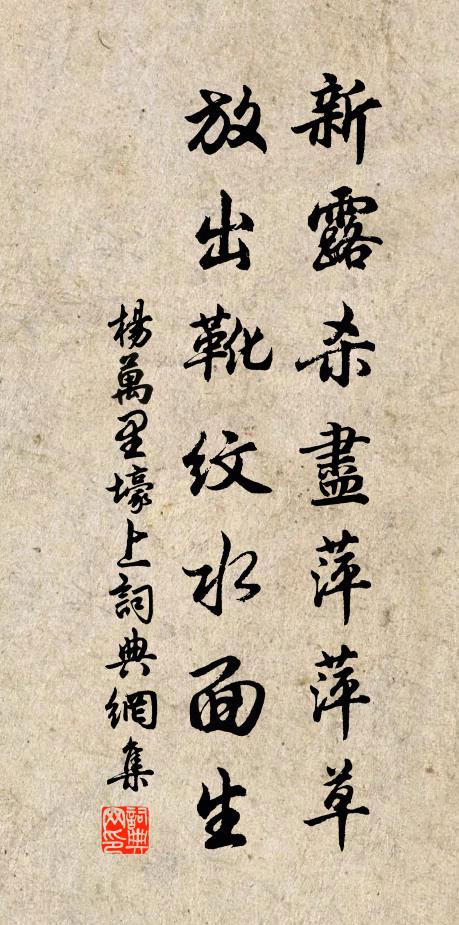 新露杀盡萍萍草
放出靴紋水面生
楊萬里壕上詞典網集
詞典網印